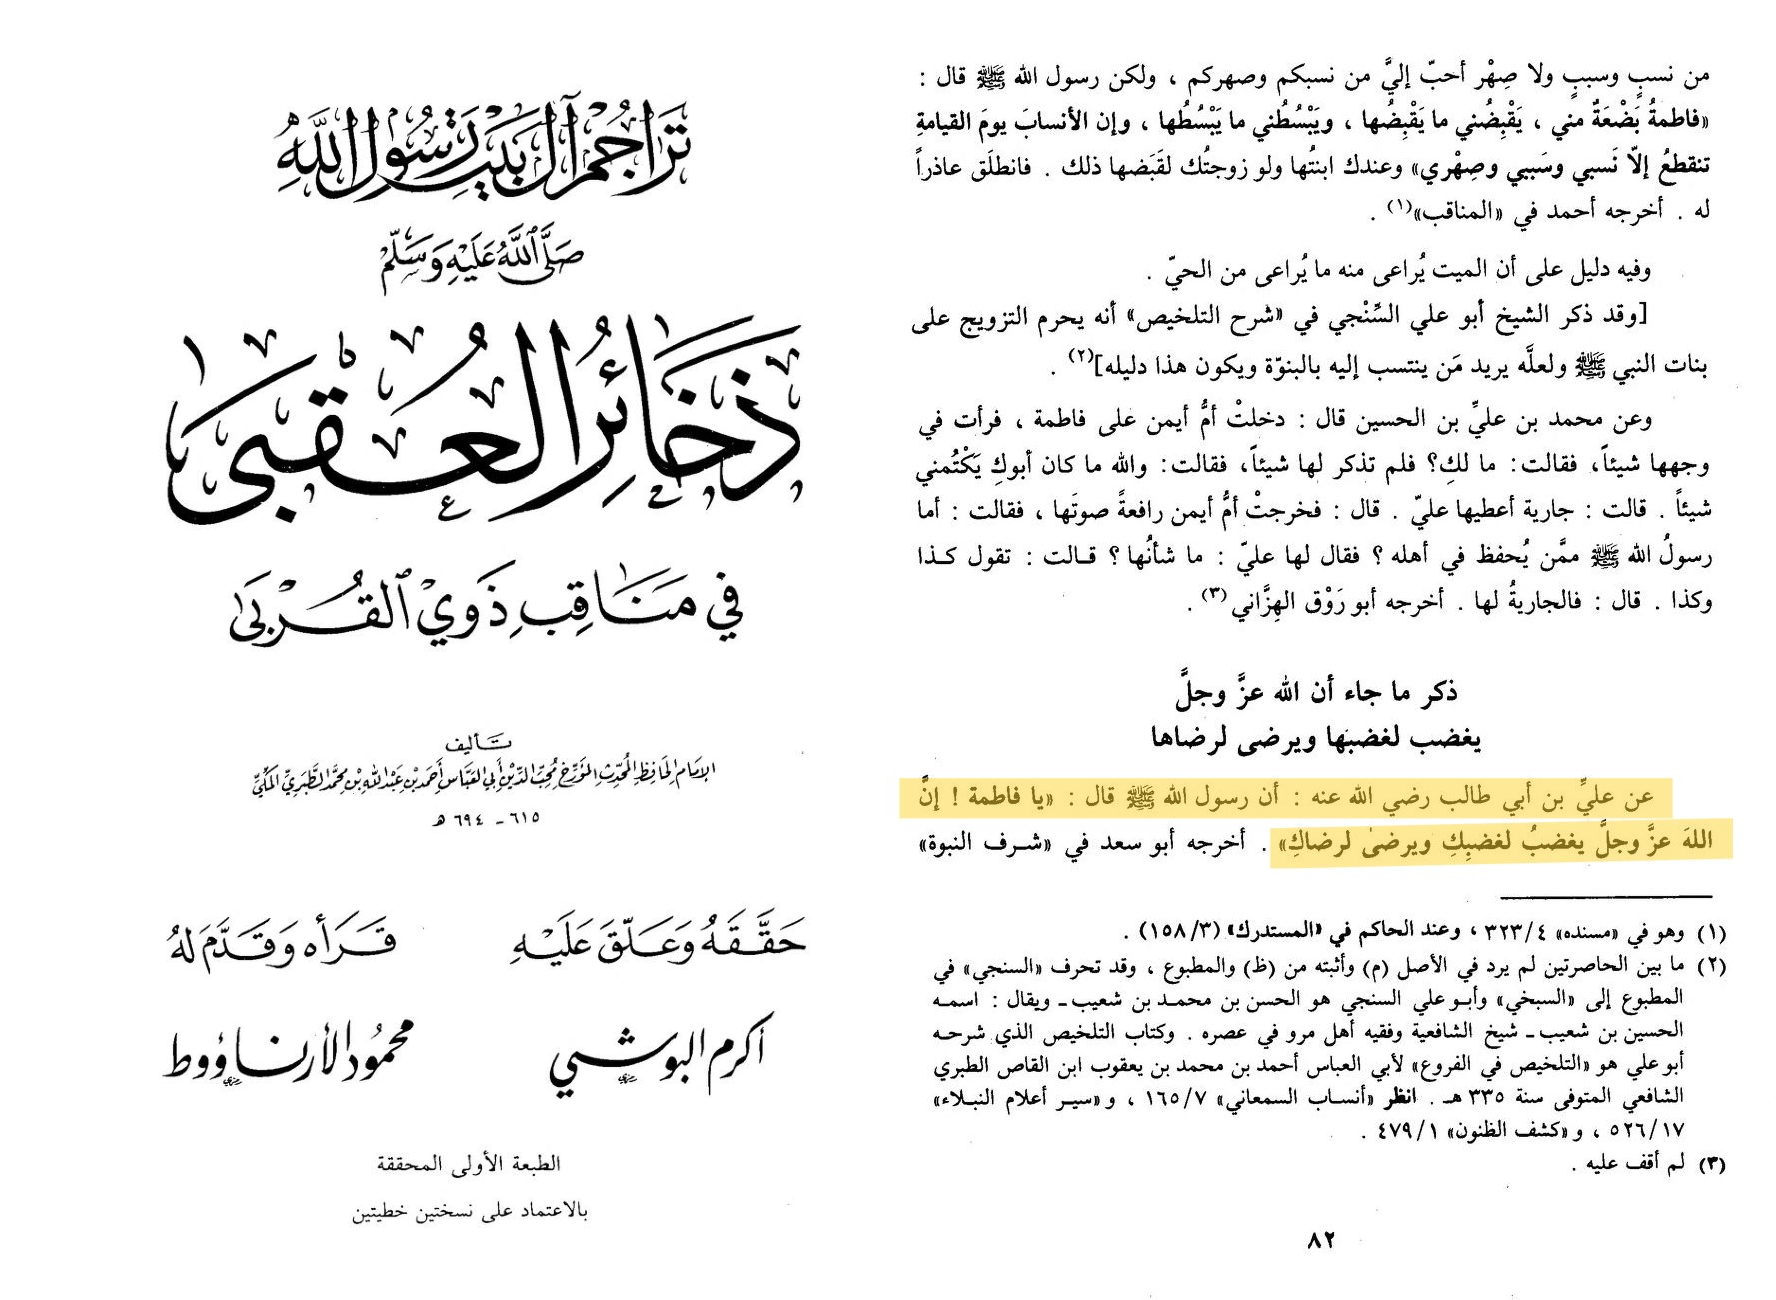 تراجم آل بيت رسول الله
صلى الله عليه وسلم
ذخائر العقبى
في مناقب ذوي القربى
تأليف
الإمام الحافظ المحدث المؤرخ محب الدين أبي العباس أحمد بن عبد الله بن محمد الطبري المكي
٦١٥ - ٦٩٤ هـ
حققه وعلق عليه
أكرم البوشي
قرأه وقدم له
محمود الأرناؤوط
الطبعة الأولى المحققة
بالاعتماد على نسختين خطيتين
من نسبٍ وسببٍ ولا صِهْر أحبّ إليَّ من نسبكم وصهركم ، ولكن رسول الله ﷺ قال :
«فاطمةُ بَضْعَةٌ مني ، يَقْبِضُني ما يَقْبِضُها ، ويَبْسُطُني ما يَبْسُطُها ، وإن الأنسابَ يومَ القيامةِ
تنقطعُ إلّا نَسبي وسَببي وصِهْري» وعندك ابنتُها ولو زوجتُك لقَبَضها ذلك . فانطلَق عاذراً
له . أخرجه أحمد في «المناقب»(١) .
وفيه دليل على أن الميت يُراعى منه ما يُراعى من الحيّ .
[وقد ذكر الشيخ أبو علي السِّنْجي في «شرح التلخيص» أنه يحرم التزويج على
بنات النبي ﷺ ولعلَّه يريد مَن ينتسب إليه بالبنوّة ويكون هذا دليله](٢) .
وعن محمد بن عليِّ بن الحسين قال : دخلتْ أمُّ أيمن على فاطمة ، فرأت في
وجهها شيئاً، فقالت: ما لكِ؟ فلم تذكر لها شيئاً، فقالت: والله ما كان أبوكِ يَكْتُمني
شيئاً . قالت : جارية أعطيها عليّ . قال : فخرجتْ أمُّ أيمن رافعةً صوتَها ، فقالت : أما
رسولُ الله ﷺ ممَّن يُحفظ في أهله ؟ فقال لها عليّ : ما شأنُها ؟ قالت : تقول كذا
وكذا . قال : فالجاريةُ لها . أخرجه أبو رَوْق الهِزَّاني(٣) .
ذكر ما جاء أن الله عزَّ وجلَّ
يغضب لغضبها ويرضى لرضاها
عن عليِّ بن أبي طالب رضي الله عنه : أن رسول الله ﷺ قال : «يا فاطمة ! إنَّ
اللهَ عزَّ وجلَّ يغضبُ لغضبِكِ ويرضىٰ لرضاكِ» . أخرجه أبو سعد في «شرف النبوة»
(١) وهو في «مسنده» ٣٢٣/٤ ، وعند الحاكم في «المستدرك» (١٥٨/٣) .
(٢) ما بين الحاصرتين لم يرد في الأصل (م) وأثبته من (ظ) والمطبوع ، وقد تحرف «السنجي» في
المطبوع إلى «السبخي» وأبو علي السنجي هو الحسن بن محمد بن شعيب ـ ويقال : اسمه
الحسين بن شعيب ـ شيخ الشافعية وفقيه أهل مرو في عصره . وكتاب التلخيص الذي شرحه
أبو علي هو «التلخيص في الفروع» لأبي العباس أحمد بن محمد بن يعقوب ابن القاص الطبري
الشافعي المتوفى سنة ٣٣٥ هـ . انظر «أنساب السمعاني» ١٦٥/٧ ، و«سير أعلام النبلاء»
٥٢٦/١٧ ، و«كشف الظنون» ٤٧٩/١ .
(٣) لم أقف عليه .
٨٢